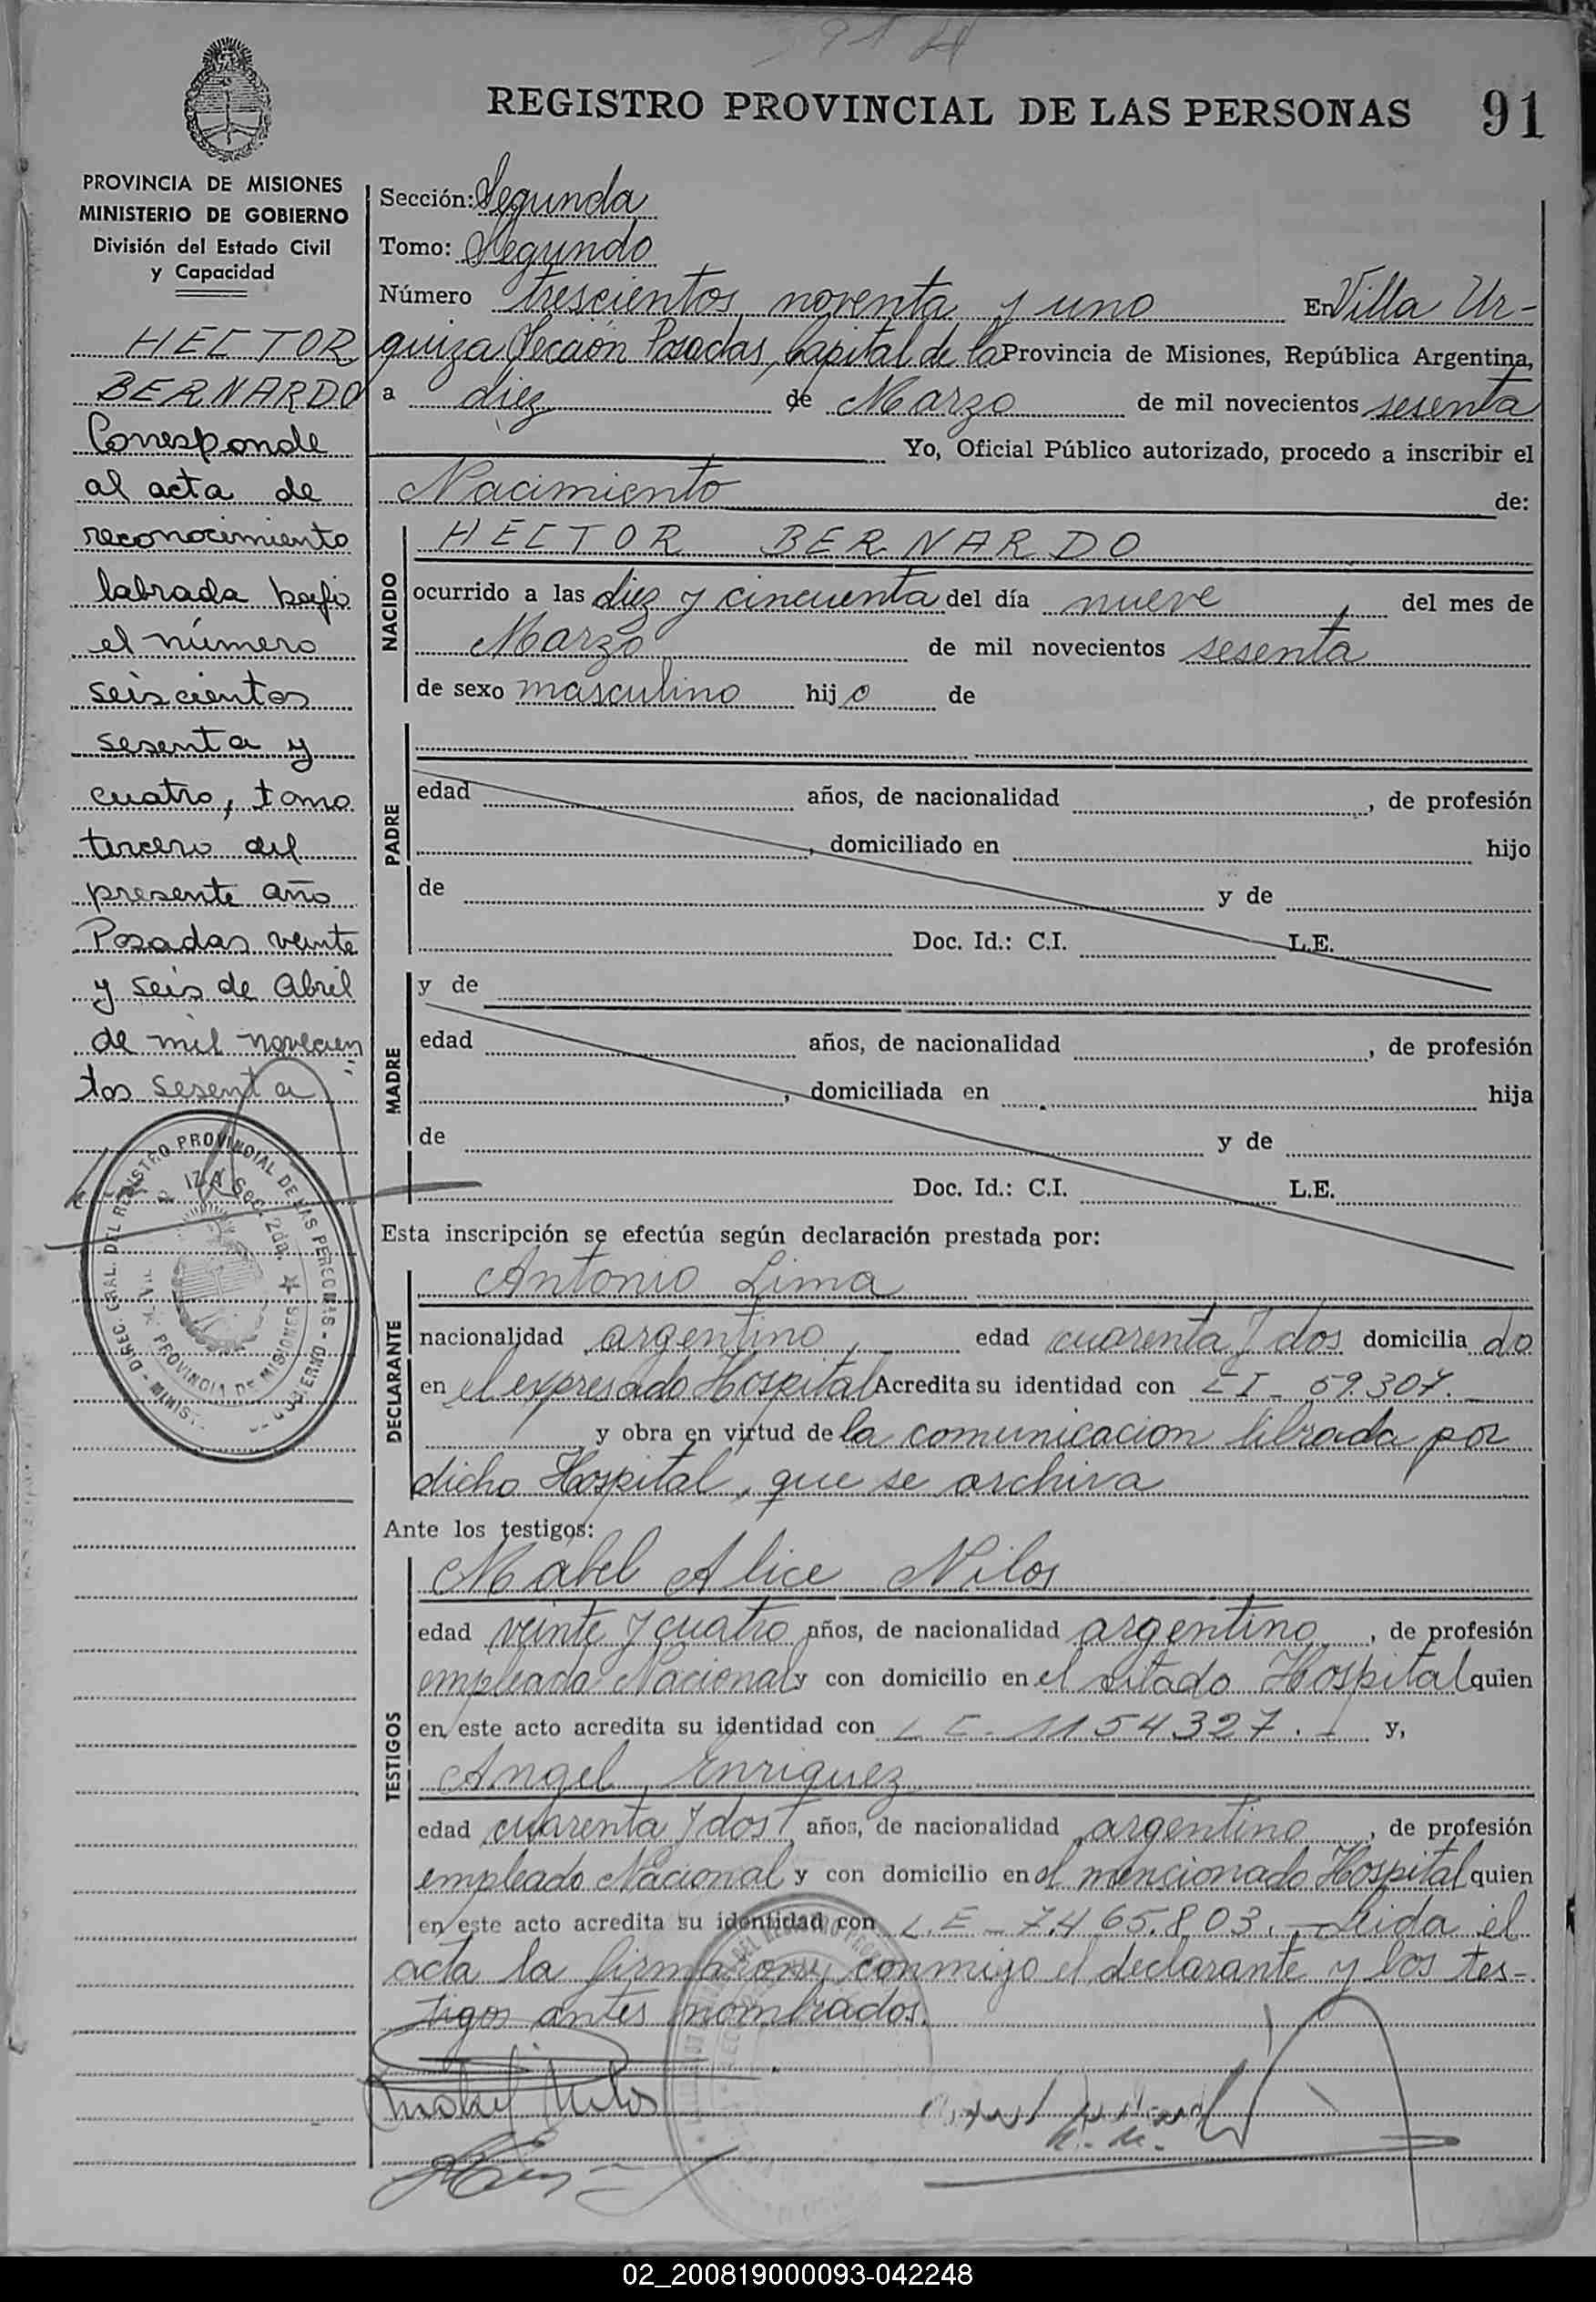 REGISTRO PROVINCIAL DE LAS PERSONAS 91
PROVINCIA DE MISIONES
MINISTERIO DE GOBIERNO
División del Estado Civil
y Capacidad
HECTOR
BERNARDO
Corresponde
al acta de
reconocimiento
labrada bajo
el número
seiscientos
sesenta y
cuatro, tomo
tercero del
presente año
Posadas veinte
y seis de Abril
de mil novecien
tos sesenta
Sección: Segunda
Tomo: Segundo
Número trescientos noventa y uno En Villa Ur-
quiza Sección Posadas, Capital de la Provincia de Misiones, República Argentina,
a diez de Marzo de mil novecientos sesenta
Yo, Oficial Público autorizado, procedo a inscribir el
Nacimiento de:
NACIDO
HECTOR BERNARDO
ocurrido a las diez y cincuenta del día nueve, del mes de
Marzo de mil novecientos sesenta
de sexo masculino hijo de
PADRE
edad años, de nacionalidad , de profesión
, domiciliado en hijo
de y de
Doc. Id.: C.I. L.E.
MADRE
y de
edad años, de nacionalidad , de profesión
, domiciliada en hija
de y de
Doc. Id.: C.I. L.E.
Esta inscripción se efectúa según declaración prestada por:
DECLARANTE
Antonio Lima
nacionalidad argentino, edad cuarenta y dos domiciliado
en el expresado Hospital Acredita su identidad con 59.307.
y obra en virtud de la comunicacion librada por
dicho Hospital, que se archiva
Ante los testigos:
TESTIGOS
Mabel Alice Nilos
edad veinte y cuatro años, de nacionalidad argentino, de profesión
empleada Nacional y con domicilio en el sitado Hospital quien
en este acto acredita su identidad con L C - 1154327. - y,
Angel Enriquez
edad cuarenta y dos años, de nacionalidad argentino, de profesión
empleado Nacional y con domicilio en el mencionado Hospital quien
en este acto acredita su identidad con L.E - 7.465.803. - Leida el
acta la firmaron conmigo el declarante y los tes-
tigos antes nombrados.
Mabel Nilos
02_200819000093-042248